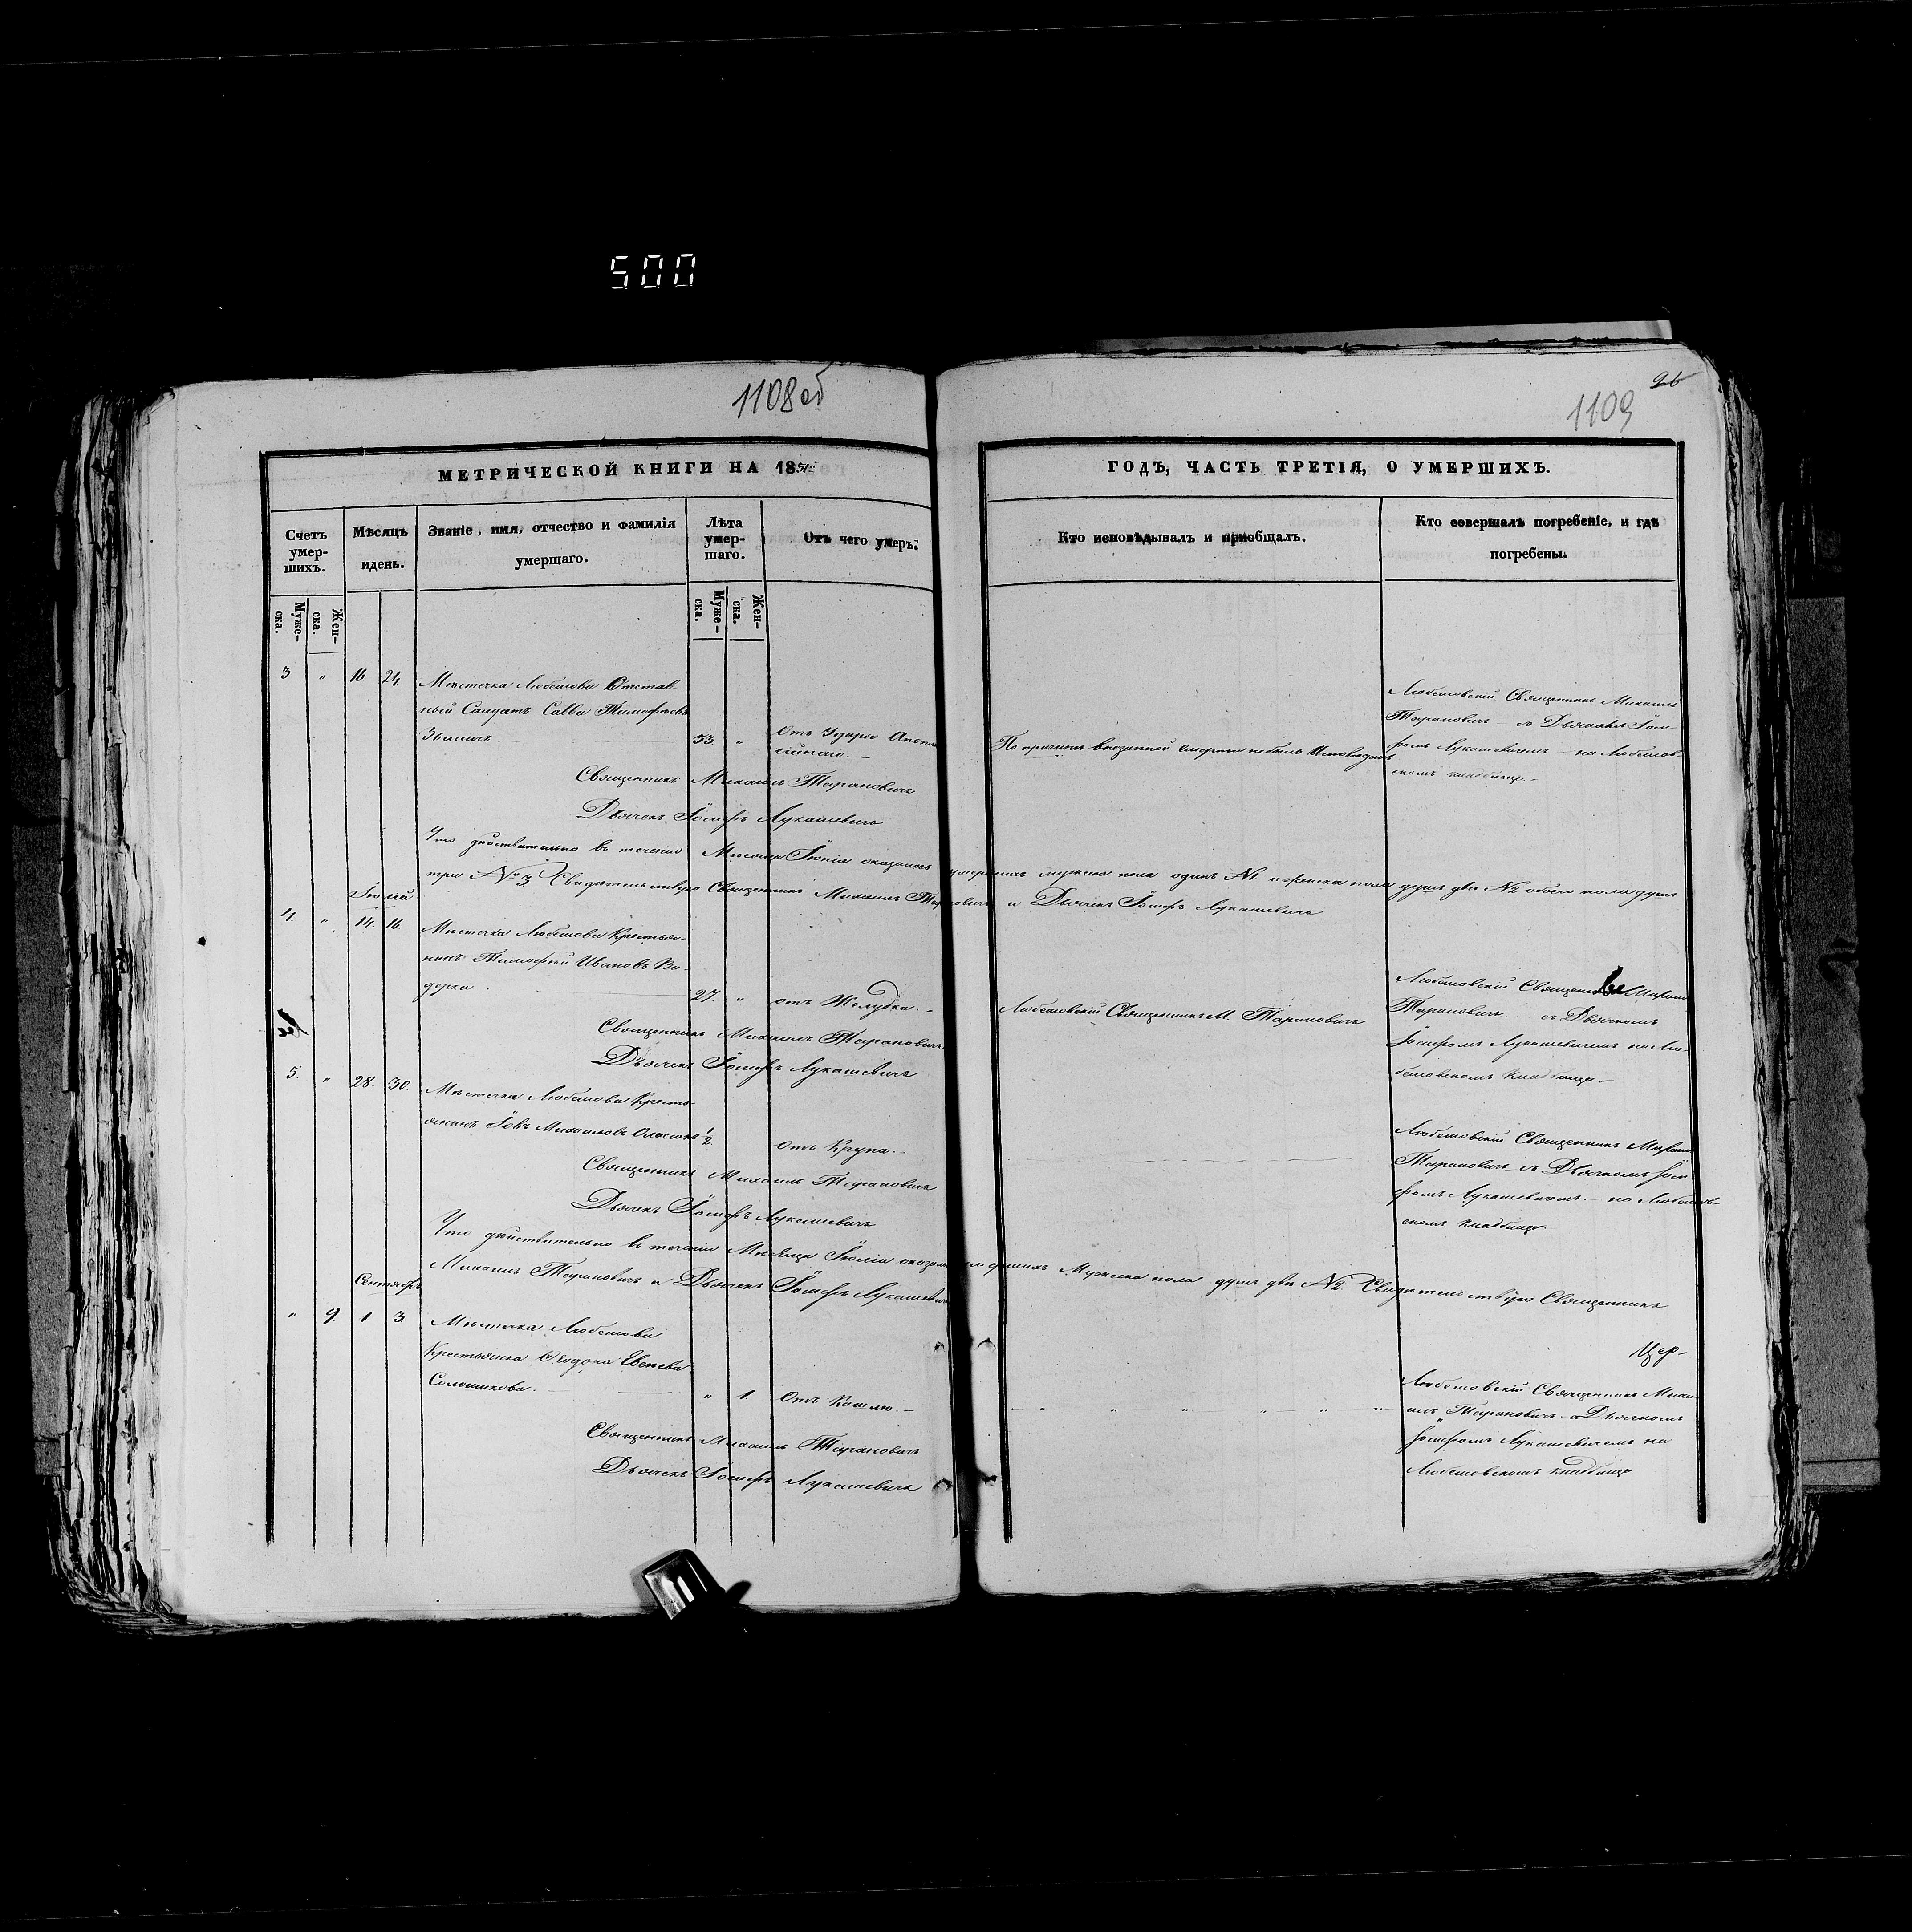 500
1108 об
26
1109
МЕТРИЧЕСКОЙ КНИГИ НА 1851й
ГОДЪ, ЧАСТЬ ТРЕТІЯ, О УМЕРШИХЪ.
Счетъ умер-шихъ.
Мѣсяцъ идень.
Званіе, имя, отчество и фамилія умершаго.
Лѣта умер-шаго.
Отъ чего умеръ.
Кто исповѣдывалъ и пріобщалъ.
Кто совершалъ погребеніе, и гдѣ погребены.
Муже-ска.
Жен-ска.
Муже-ска.
Жен-ска.
3 " 16 24.
Мѣстечка Любешова Отстав-
ный Салдатъ Савва Тимофѣевъ
53. "
Отъ Удара Апопле-
По причинѣ внезапной смерти небылъ Исповѣданъ
Любешовскій Священникъ Михаилъ
Тарановичъ съ Дьячкомъ Іоси-
фомъ Лукашевичемъ на Любешов-
скомъ кладбище.
Священникъ Михаилъ Тарановичъ
Дьячекъ Іосифъ Лукашевичъ
Что дѣйствительно въ теченіи Мѣсяца Іюнія оказалось умершихъ мужеска пола одинъ №1 и женска пола душъ двѣ №2 обоего пола душъ
три №3 Свидѣтельствую Священникъ Михаилъ Тарановичъ и Дьячекъ Іосифъ Лукашевичъ
Іюлій
4. " 14. 16.
Мѣстечка Любешова Крестья-
нинъ Тимофей Ивановъ Во-
дерка
27. "
отъ Желудка.
Любешовскій Священникъ М. Тарановичъ
Любешовскій Священникъ Михаилъ
Тарановичъ съ Дьячкомъ
Іосифомъ Лукашевичемъ на Лю-
бешовскомъ кладбище
Священникъ Михаилъ Тарановичъ
Дьячекъ Іосифъ Лукашевичъ
5. " 28. 30.
Мѣстечка Любешова Кресть-
янинъ Іовъ Михаиловъ
1/2
отъ Крупа.
Любешовскій Священникъ Михаилъ
Тарановичъ съ Дьячкомъ Іоси-
фомъ Лукашевичемъ на Любешов-
скомъ кладбище.
Священникъ Михаилъ Тарановичъ
Дьячекъ Іосифъ Лукашевичъ
Что дѣйствительно въ теченіи Мѣсяца Іюлія оказалось умершихъ Мужеска пола душъ двѣ №2. Свидѣтельствую Священникъ
Михаилъ Тарановичъ и Дьячекъ Іосифъ Лукашевичъ
Сентябрь
" 9. 1 3
Мѣстечка Любешова
Крестьянка
Соломикова.
" 1.
Отъ Кашлю.
Цер-
Любешовскій Священникъ Миха-
илъ Тарановичъ с Дьячкомъ
Іосифомъ Лукашевичемъ на
Любешовскомъ кладбище
Священникъ Михаилъ Тарановичъ
Дьячекъ Іосифъ Лукашевичъ